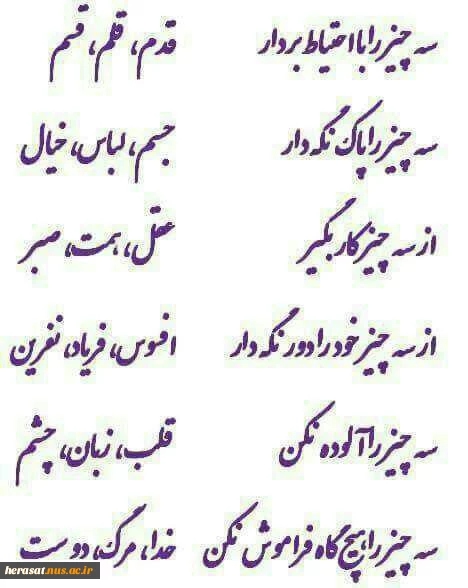 سه چیز را با احتیاط بردار قدم، قلم، قسم
سه چیز را پاک نگه دار جسم، لباس، خیال
از سه چیز کار بگیر عقل، همت، صبر
از سه چیز خود را دور نگه دار افسوس، فریاد، نفرین
سه چیز را آلوده نکن قلب، زبان، چشم
سه چیز را هیچ گاه فراموش نکن خدا، مرگ، دوست
herasat.nus.ac.ir